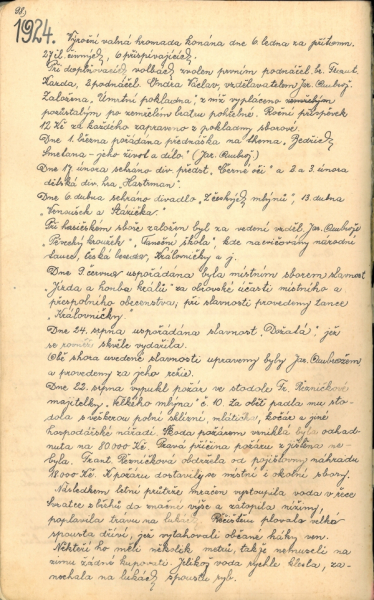 1924.
Výroční valná hromada konána dne 6. ledna za přítomn.
27 čl. činných, 6 přispívajících.
Při doplňovacích volbách zvolen prvním podnáčel. br. Frant.
Karda, 2. podnáčel. Ondra Václav, vzdělavatelem Jar. Ambrož.
Založena "Úmrtní pokladna", z níž vypláceno
pozůstalým po zemřelém bratru pohřebné. Roční příspěvek
12 Kč za každého zapraveno z pokladny sborové.
Dne 1. března pořádána přednáška na thema "Bedřich
Smetana - jeho život a dílo" (Jar. Ambrož.)
Dne 17. února sehráno div. předst. "Černé oči" a 2. a 3. února
dětská div. hra "Hartman".
Dne 6. dubna sehráno divadlo "Z českých mlýnů", 13. dubna
"Vrnouček a Stáříčka".
Při hasičském sboru založen byl za vedení vzděl. Jar. Ambrože
"Pěvecký kroužek", "Taneční škola", kde nacvičovány národní
tance, česká beseda, Královničky a j.
Dne 9. června uspořádána byla místním sborem slavnost
"Jízda a honba králů" za obrovské účasti místního a
přespolního obecenstva; při slavnosti provedeny tance
"Královničky".
Dne 24. srpna uspořádána slavnost "Dožatá", jež
se skvěle vydařila.
Obě shora uvedené slavnosti upraveny byly Jar. Ambrožem
a provedeny za jeho režie.
Dne 22. srpna vypukl požár ve stodole Fr. Řezníčkové
majitelky "Velkého mlýna" č. 10. Za oběť padla mu sto-
dola s veškerou polní sklizní, mlátička, kočár a jiné
hospodářské nářadí. Škoda požárem vzniklá byla odhad-
nuta na 80.000 Kč. Pravá příčina požáru zjištěna ne-
byla. Frant. Řezníčková obdržela od pojišťovny náhradu
18.000 Kč. K požáru dostavily se místní i okolní sbory.
Následkem letní průtrže mračen vystoupila voda v řece
Svratce z břehů do značné výše a zatopila nížiny,
poplavila trávu na lukách. Řečištěm plovala velká
spousta dříví, jež vytahovali občané háky ven.
Někteří ho měli několik metrů, takže nemuseli na
zimu žádné kupovati. Jelikož voda rychle klesla, za-
nechala na lukách spoustu ryb.